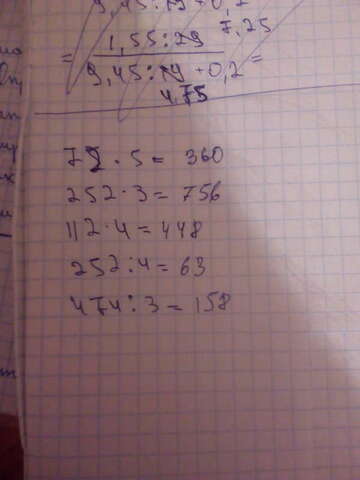 9,45:19+0,2
7,25
= 1,55:29
9,45:19+0,2 =
4,75
72·5=360
252·3=756
112·4=448
252:4=63
474:3=158